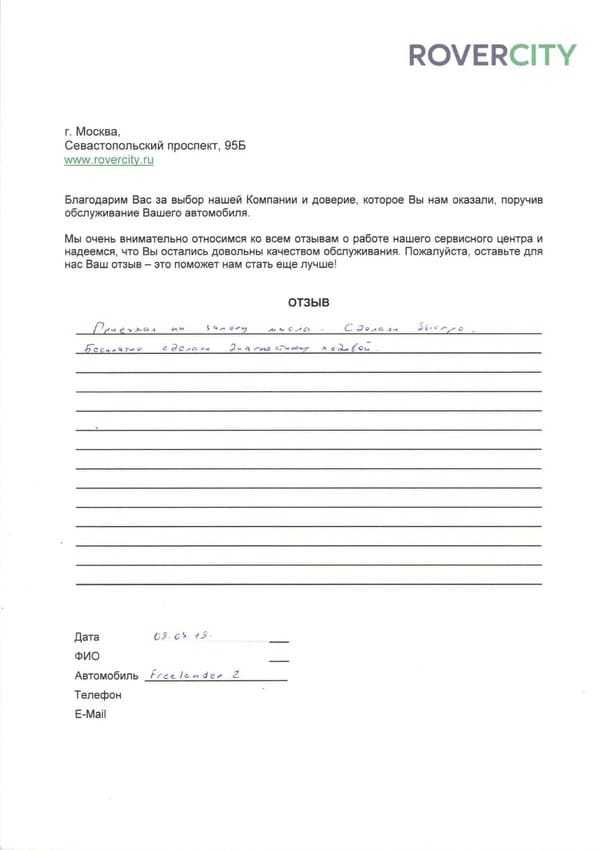 ROVERCITY
г. Москва,
Севастопольский проспект, 95Б
www.rovercity.ru
Благодарим Вас за выбор нашей Компании и доверие, которое Вы нам оказали, поручив
обслуживание Вашего автомобиля.
Мы очень внимательно относимся ко всем отзывам о работе нашего сервисного центра и
надеемся, что Вы остались довольны качеством обслуживания. Пожалуйста, оставьте для
нас Ваш отзыв – это поможет нам стать еще лучше!
ОТЗЫВ
Приехал замену масла. Сделали быстро.
Бесплатно сделали диагностику ходовой.
Дата
ФИО
Автомобиль Freelander 2
Телефон
E-Mail